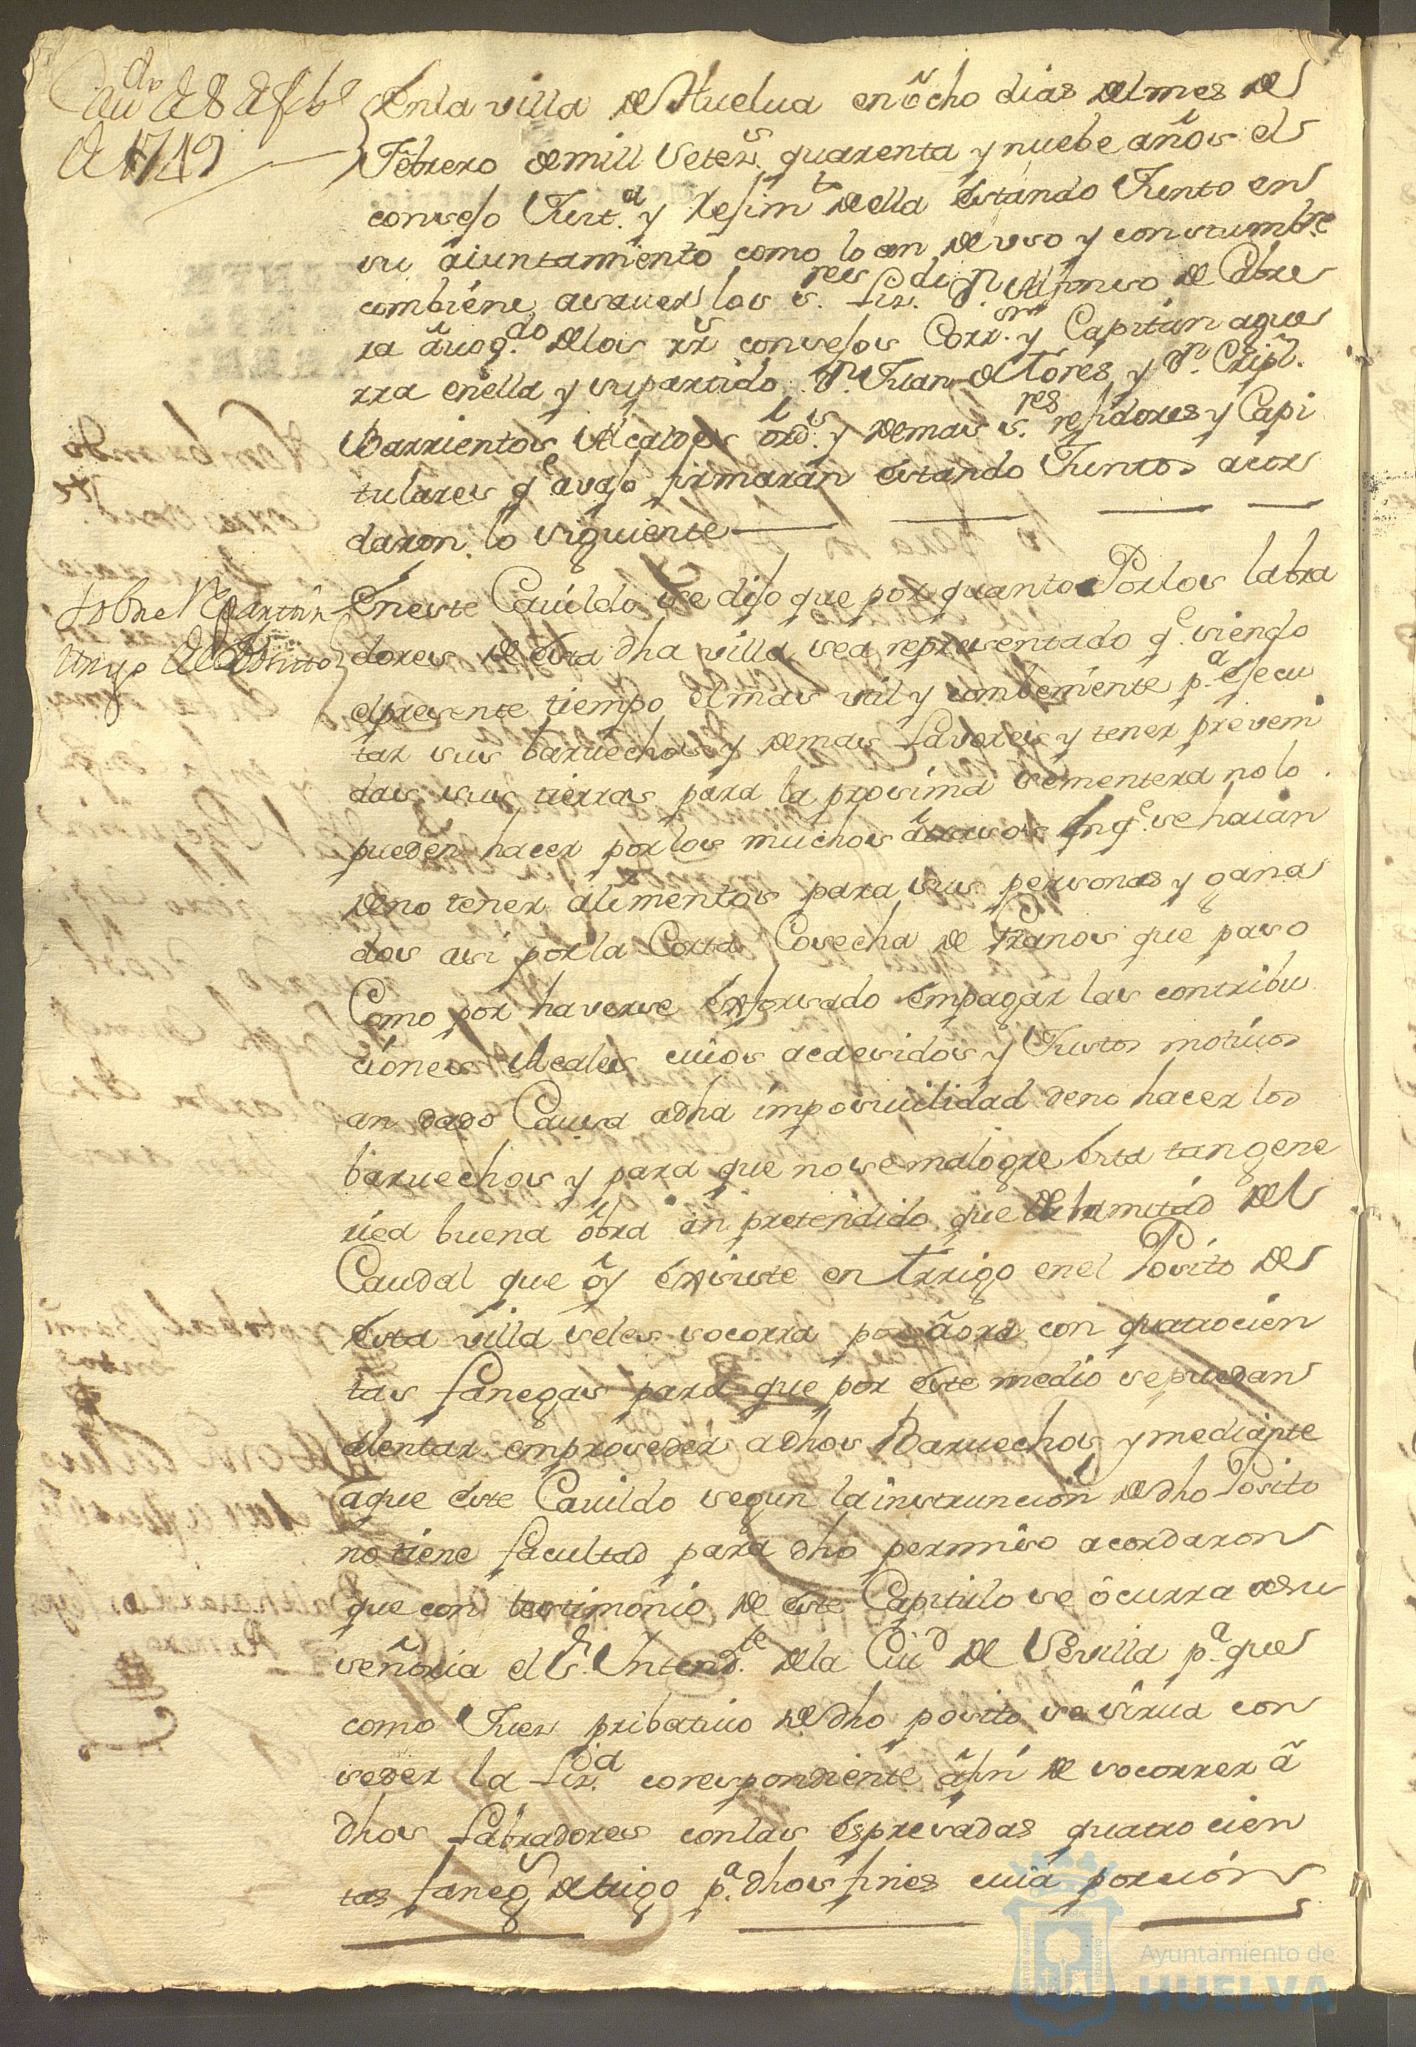 Cau.do de 8 de feb.o
de 1749
En la villa de Huelua en ôcho dias del mes de
Febrero de mill Seters. quarenta y nuebe años el
conseso Just.a y Resim.to de ella estando Junto en
su aiuntamiento como lo an de uso y constumbre
combiêne, asauer los s.res liz.do D.n Alfonso de Cabre
ra âuog.do de los rrs consesos Corr.or y Capitan ague
rra en ella y su partido D.n Juan de Tores y D.n Cripl.
Barrientos Alcaldes ord.s y demas s.res residores y Capi
tulares q.e avaso firmarân estando Juntos acor
daron lo siguiente
Sobre Repartir
trigo del Posito
En este Cauildo se diso que por quanto Por los labra
dores de êsta dha villa sea representado q.e siendo
el presente tiempo el mas util y combeniente p.a esecu
tar sus baruechos y demas lavores y tener preveni
das sus tierras para la prosima sementera no lo
pueden hacer por los muchos âtrasos en q.e se haian
de no tener alimentos para sus personas y gana
dos asi por la Corta Cosecha de Granos que paso
Como por haverse êsforsado êmpagar las contribu
ciones Reales cuios acaesidos y Justos motiuos
an dado Causa adha imposiuilidad deno hacer los
baruechos y para que no se malogre êsta tan gene
rica buena ôbra an pretendido que de la mitad del
Caudal que ôy êxsiste en trigo en el Posito de
êsta villa seles socorra por âora con quatrocien
tas fanegas para que por êste medio se puedan
alentar emproseder a dhos Baruechos y mediante
aque êste Cauildo segun la instruncion de dho Posito
no tiene facultad para dho permiso acordaron
que con testimonio de êste Capitulo se ôcurra asu
señoria el S.r Intend.te de la Ciu.d de Sevilla p.a que
como Jues pribatiuo de dho posito se sirua con
seder la liz.a corespondiente âfin de socorrer â
dhos labradores con las êspresadas quatrocien
tas faneg.s de trigo p.a dhos fines cuia porsion
Ayuntamiento de
HUELVA